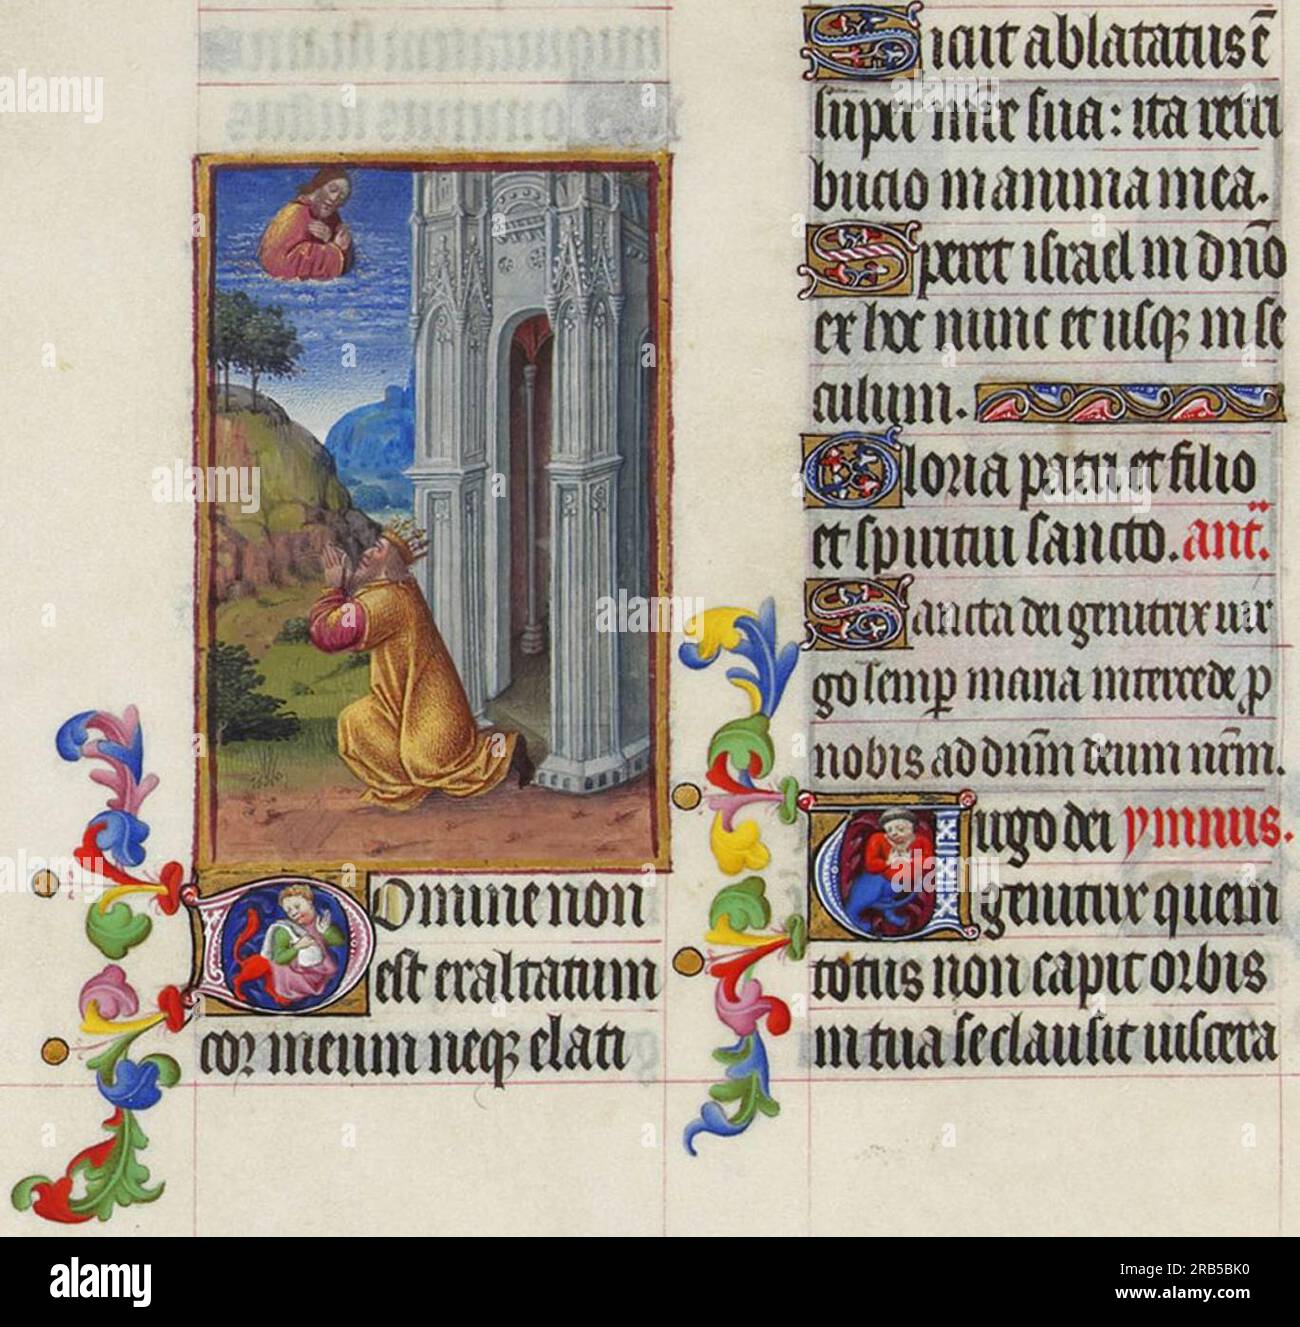 Domine non
est exaltatum
cor meum neqȝ elati
Sicut ablatatus ē
super mr̄e sua: ita retri
bucio in anima mea.
Speret israel in dn̄o
ex hoc nunc et usqȝ in se
culum.
Gloria patri et filio
et spiritui sancto. ant̄.
Sancta dei genitrix uir
go semp̱ maria intercede ꝑ
nobis ad dn̄m deum nr̄m.
Uirgo dei ymnus.
genitrix quem
totus non capit orbis
in tua se clausit uiscera
alamy
Image ID: RB5BK0
www.alamy.com